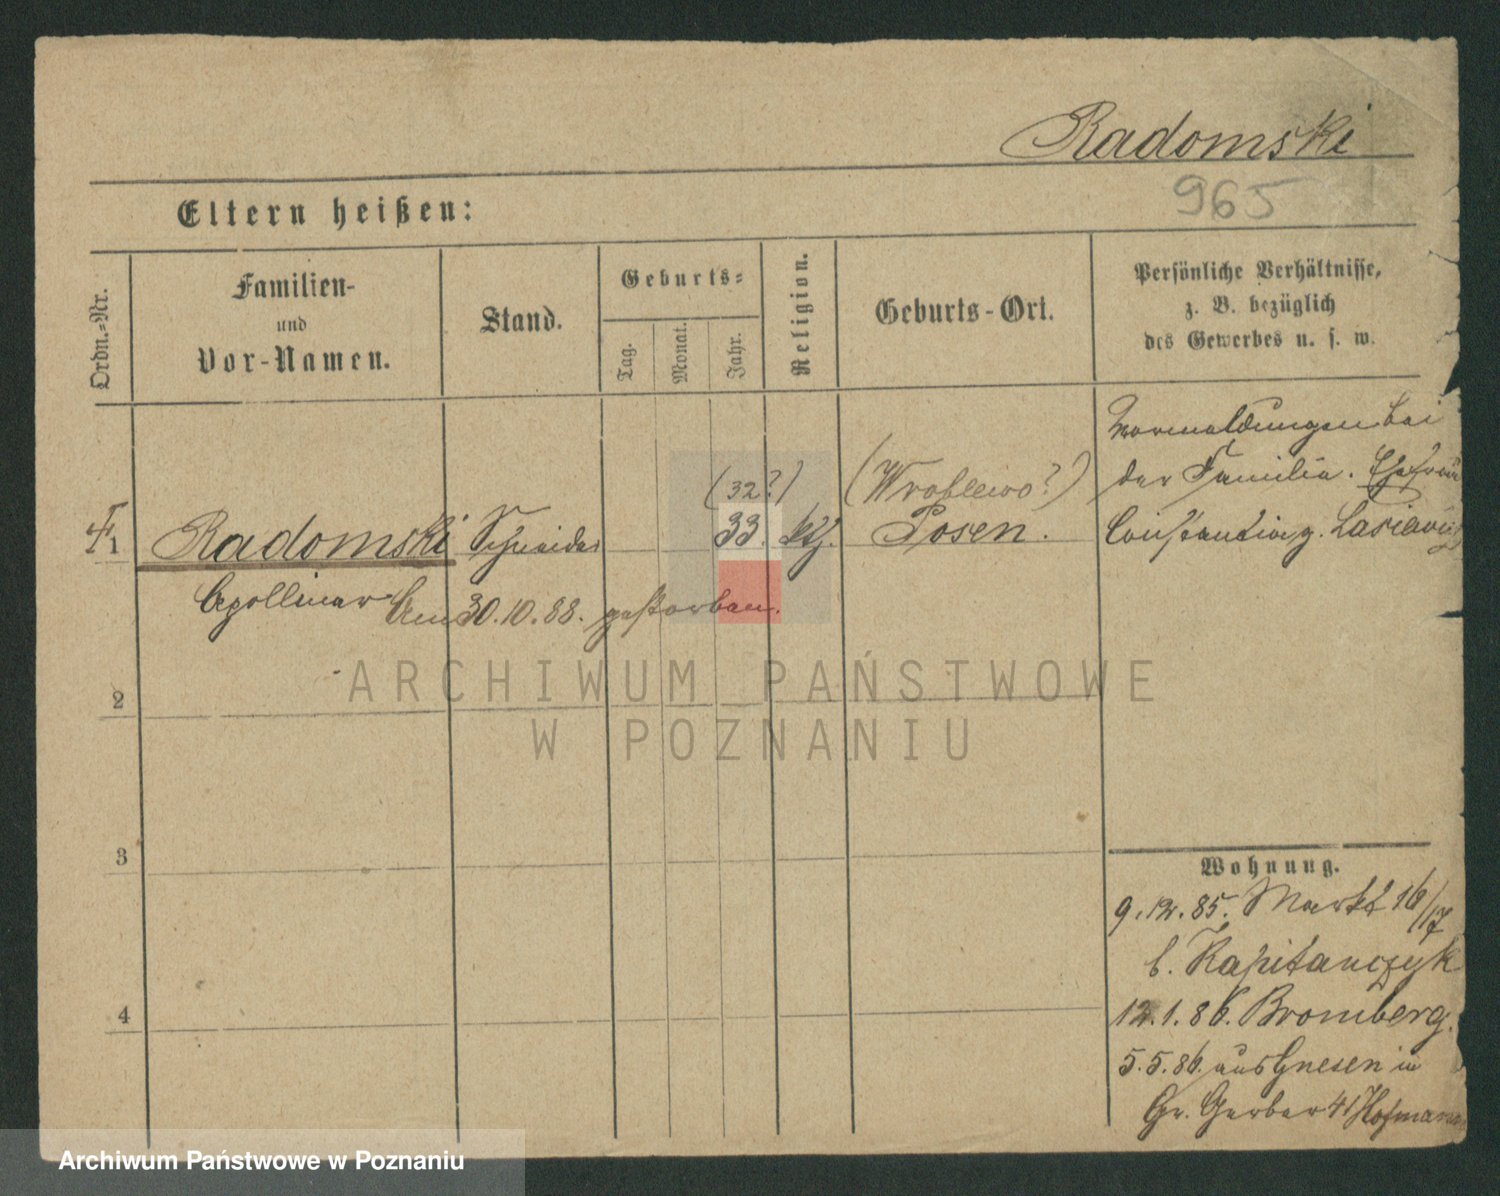 Radomski
965
Eltern heißen:
Ordn.-Nr.
Familien-
und
Vor-Namen.
Stand.
Geburts-
Tag.
Monat.
Jahr.
Religion.
Geburts-Ort.
Persönliche Verhältnisse,
z. B. bezüglich
des Gewerbes u. s. w.
Vormeldungen bei
der Familie. Ehefrau
(32?)
(Wroblewo?)
1
Radomski
Schneider
33.
kth.
Posen.
Apollinar
Am 30.10.88. gestorben.
2
3
4
Wohnung.
9.12.85. Markt 16/17
b. Kapitanczyk
12.1.86. Bromberg.
5.5.86. aus Gnesen in
Gr. Gerber 41 Hofmann
ARCHIWUM PAŃSTWOWE
W POZNANIU
Archiwum Państwowe w Poznaniu